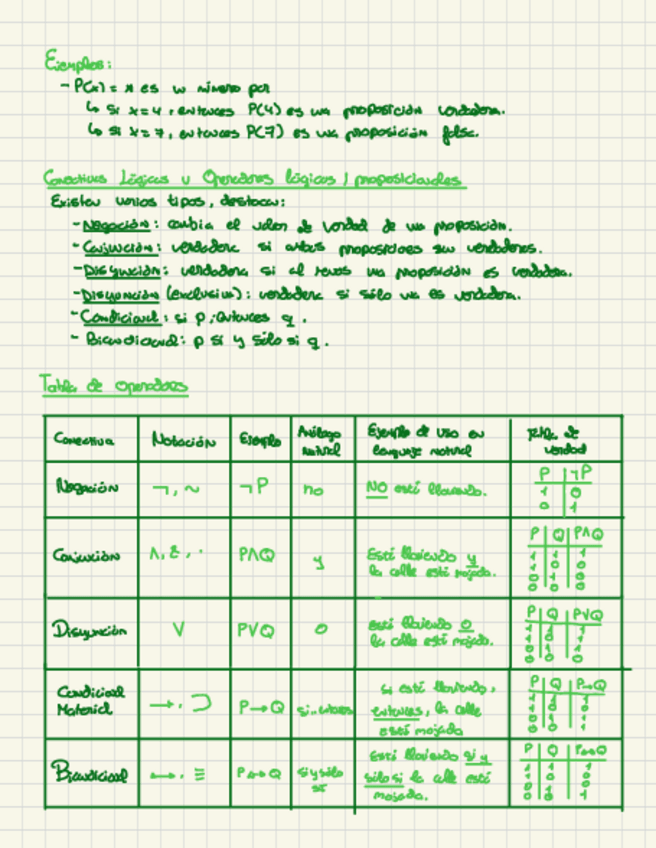 Ejemplos:
- P(x) = x es un número par
↳ si x=4, entonces P(4) es una proposición verdadera.
↳ si x=7, entonces P(7) es una proposición falsa.
Conectivas Lógicas u Operadores lógicos / proposicionales
Existen varios tipos, destacan:
- Negación: cambia el valor de verdad de una proposición.
- Conjunción: verdadera si ambas proposiciones son verdaderas.
- Disyunción: verdadera si al menos una proposición es verdadera.
- Disyunción (exclusiva): verdadera si sólo una es verdadera.
- Condicional: si p, entonces q.
- Bicondicional: p si y sólo si q.
Tabla de operadores
Conectiva Notación Ejemplo Análogo natural Ejemplo de uso en lenguaje natural Tabla de verdad
Negación ¬, ~ ¬P no NO está lloviendo.
P ¬P
1 0
0 1
Conjunción ∧, &, · P∧Q y Está lloviendo y la calle está mojada.
P Q P∧Q
Disyunción ∨ P∨Q o está lloviendo o la calle está mojada.
P Q P∨Q
Condicional Material →, ⊃ P→Q si...entonces si está lloviendo, entonces, la calle está mojada
P Q P→Q
Bicondicional ↔, ≡ P↔Q si y sólo si Está lloviendo si y sólo si la calle está mojada.
P Q P↔Q